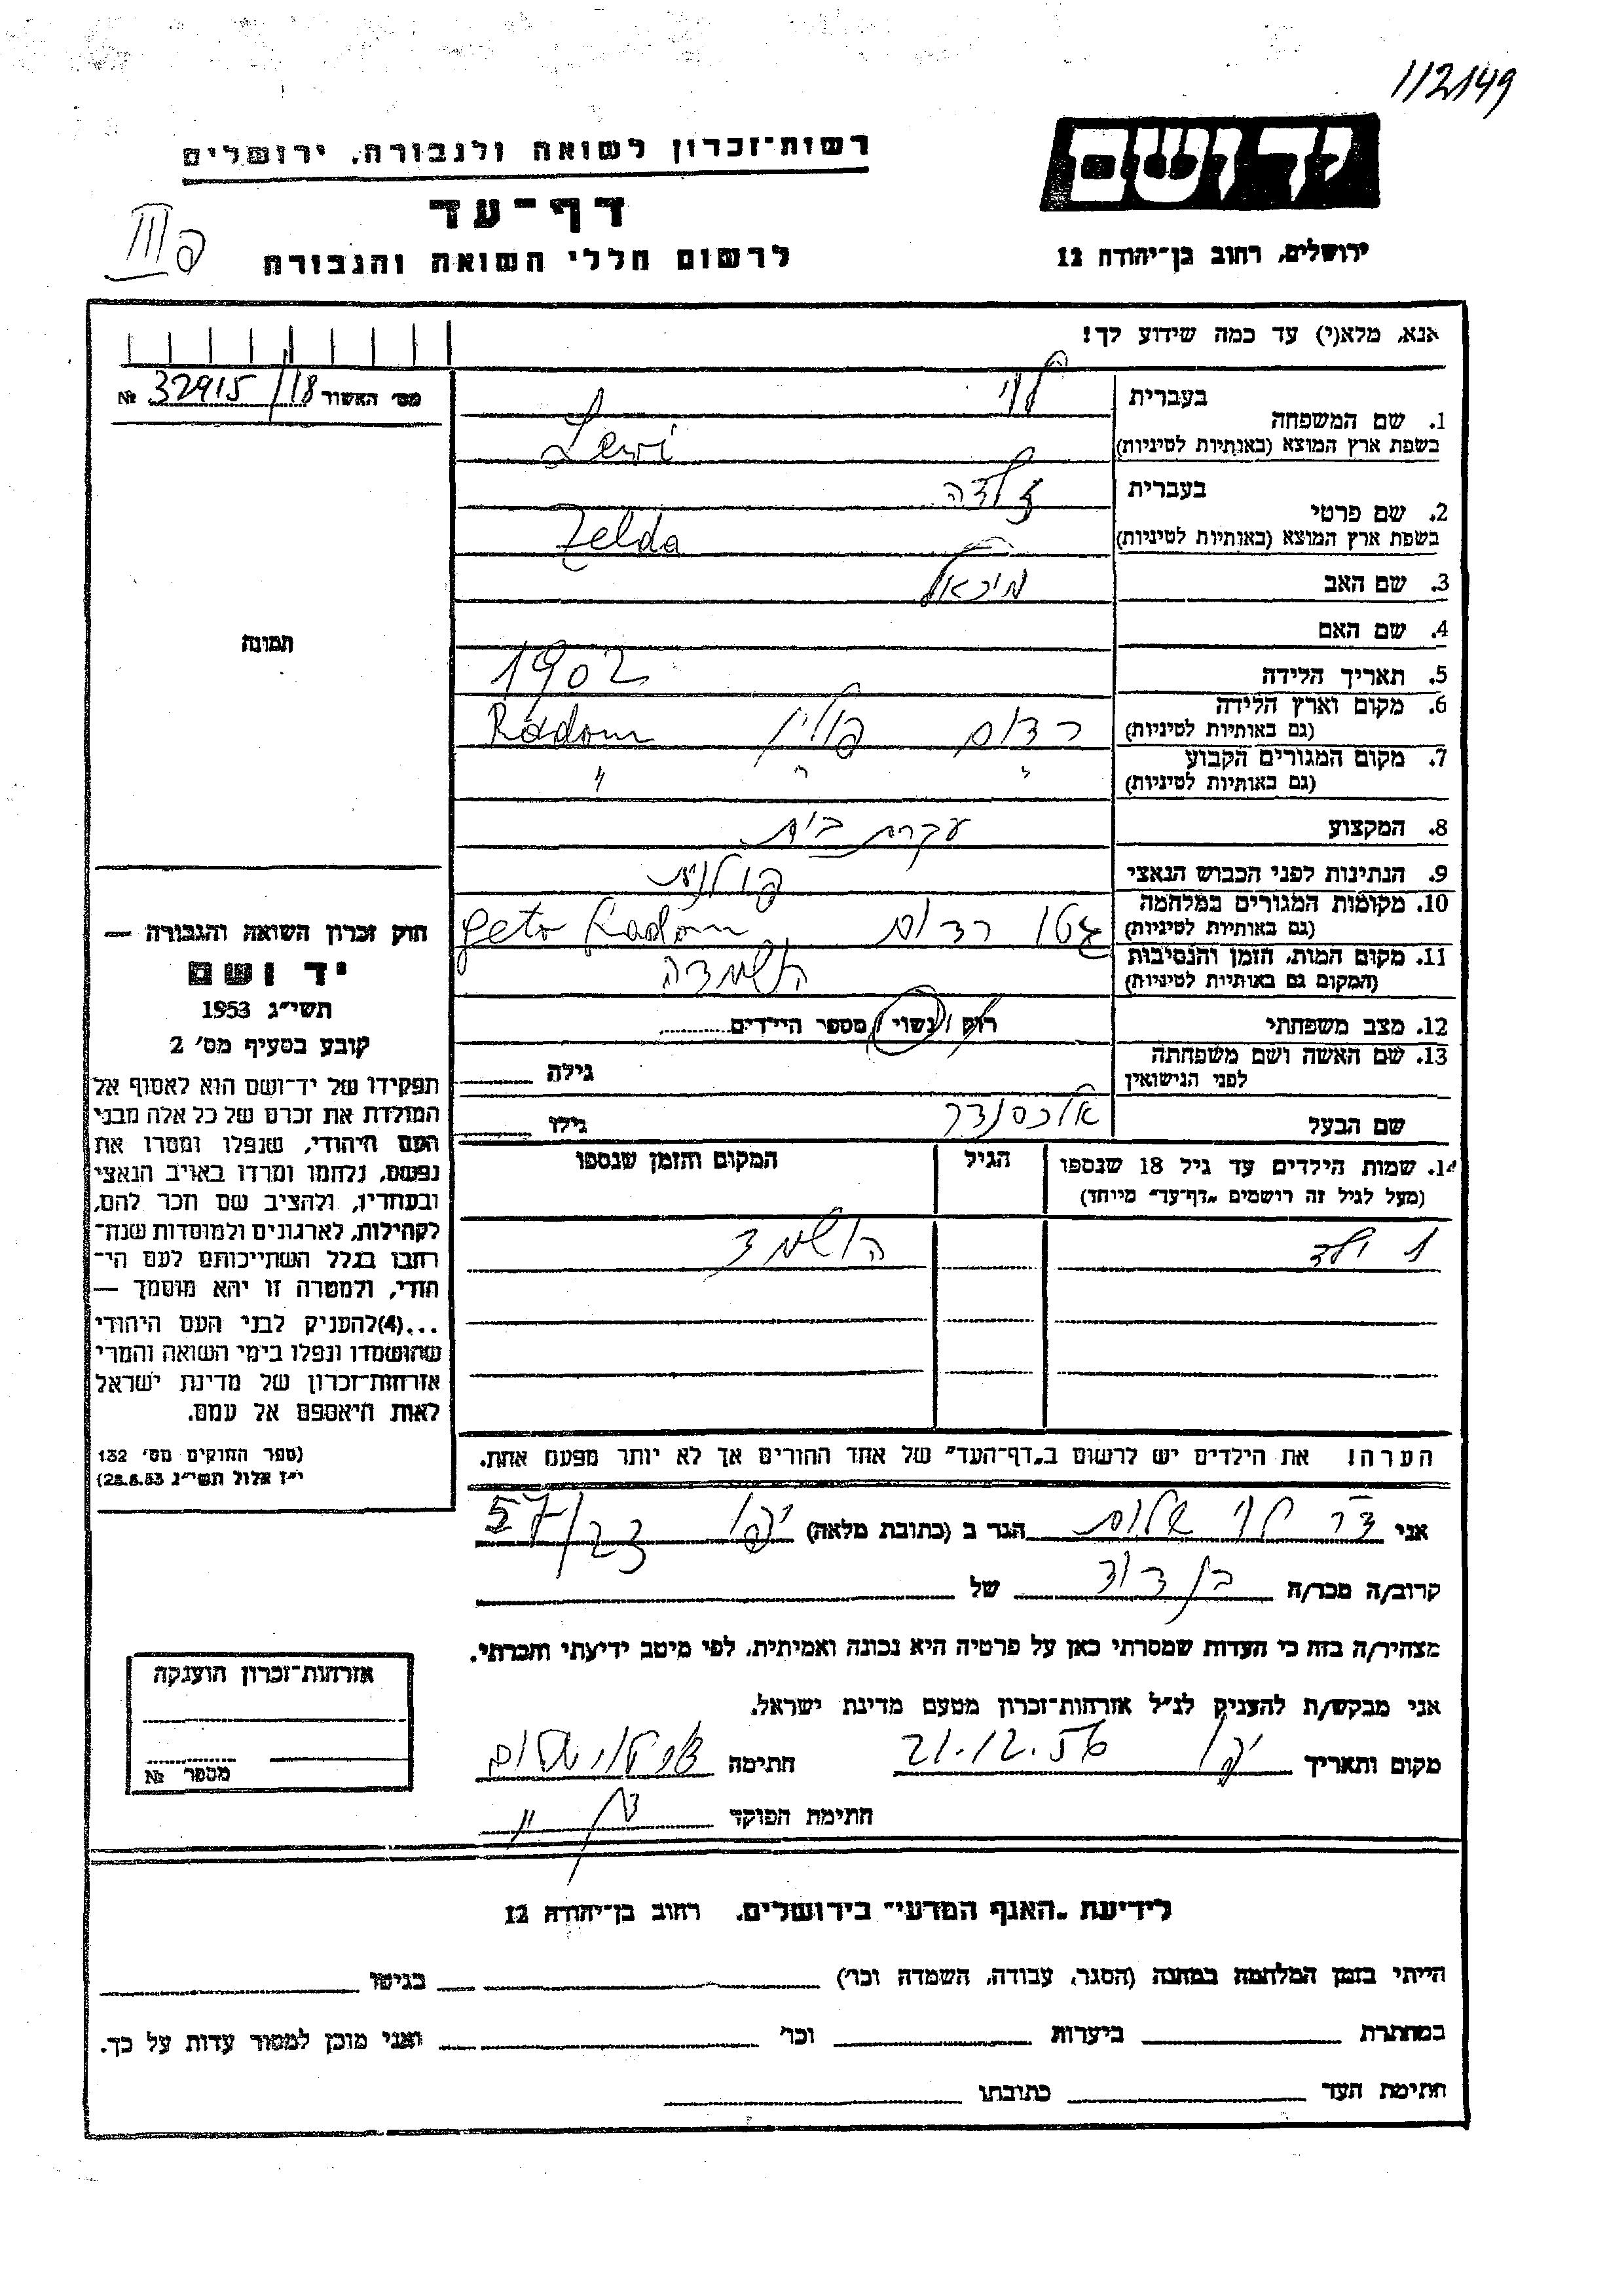 112149
יד ושם
רשות־זכרון לשואה ולגבורה, ירושלים
דף־עד
ירושלים, רחוב בן־יהודה 12
לרשום חללי השואה והגבורה
פ III
אנא, מלא(י) עד כמה שידוע לך!
מס׳ האשור 32915/18 №
1. שם המשפחה
בעברית לוי
בשפת ארץ המוצא (באותיות לטיניות) Lewi
2. שם פרטי
בעברית זלדה
בשפת ארץ המוצא (באותיות לטיניות) Zelda
3. שם האב מיכאל
4. שם האם
5. תאריך הלידה 1902
6. מקום וארץ הלידה
(גם באותיות לטיניות) רדום פולין Radom
7. מקום המגורים הקבוע
(גם באותיות לטיניות) " " "
8. המקצוע עקרת בית
9. הנתינות לפני הכבוש הנאצי פולנית
10. מקומות המגורים במלחמה
(גם באותיות לטיניות) גטו רדום geto Radom
11. מקום המות, הזמן והנסיבות
(המקום גם באותיות לטיניות) השמדה
12. מצב משפחתי רווק / נשוי / מספר הילדים
13. שם האשה ושם משפחתה
לפני הנישואין גילה
שם הבעל אלכסנדר גילו
14. שמות הילדים עד גיל 18 שנספו
(מעל לגיל זה רושמים „דף־עד״ מיוחד)
הגיל
המקום והזמן שנספו
1 ילד הושמד
הערה! את הילדים יש לרשום ב„דף־העד״ של אחד ההורים אך לא יותר מפעם אחת.
תמונה
חוק זכרון השואה והגבורה —
יד ושם
תשי״ג 1953
קובע בסעיף מס׳ 2
תפקידו של יד־ושם הוא לאסוף אל
המולדת את זכרם של כל אלה מבני
העם היהודי, שנפלו ומסרו את
נפשם, נלחמו ומרדו באויב הנאצי
ובעוזריו, ולהציב שם וזכר להם,
לקהילות, לארגונים ולמוסדות שנח־
רבו בגלל השתייכותם לעם הי־
הודי, ולמטרה זו יהא מוסמך —
...(4) להעניק לבני העם היהודי
שהושמדו ונפלו בימי השואה והמרי
אזרחות־זכרון של מדינת ישראל
לאות היאספם אל עמם.
(ספר החוקים מס׳ 132
י״ז אלול תשי״ג 28.8.53)
אני דר לוי שלום הגר ב (כתובת מלאה) יפו 57/23
קרוב/ה מכר/ה בן דוד של
מצהיר/ה בזה כי העדות שמסרתי כאן על פרטיה היא נכונה ואמיתית, לפי מיטב ידיעתי והכרתי.
אני מבקש/ת להעניק לנ״ל אזרחות־זכרון מטעם מדינת ישראל.
מקום ותאריך יפו 21.12.56 חתימה
חתימת הפוקד
אזרחות־זכרון הוענקה
מספר №
לידיעת „האגף המדעי״ בירושלים, רחוב בן־יהודה 12
הייתי בזמן המלחמה במחנה (הסגר, עבודה, השמדה וכו׳) בגיטו
במחתרת ביערות וכו׳ ואני מוכן למסור עדות על כך.
חתימת העד כתובתו